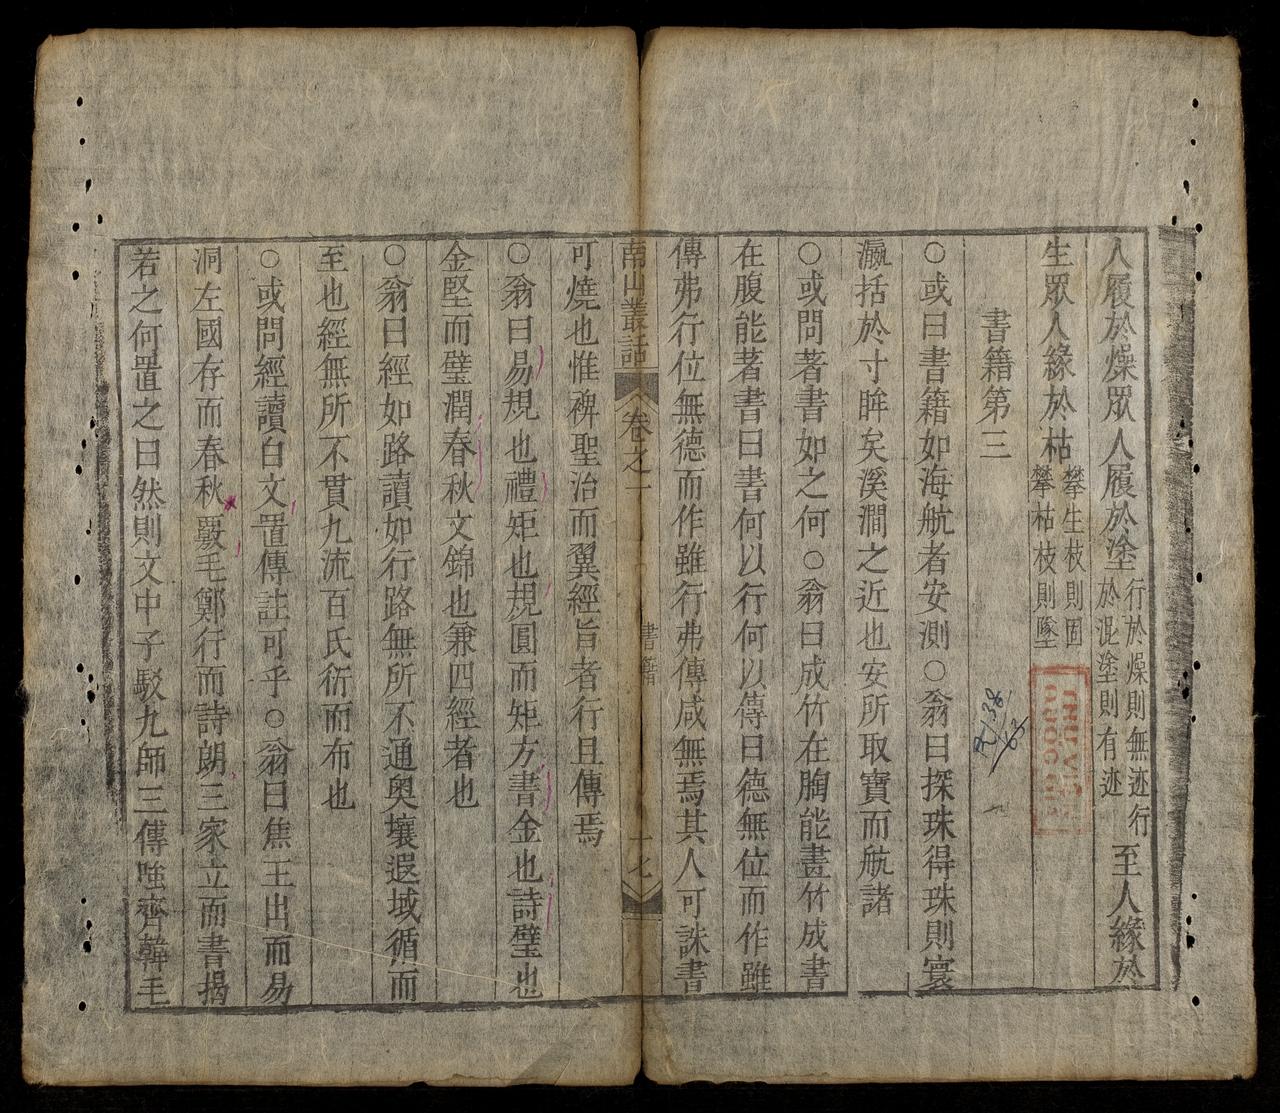 人履於燥眾人履於塗行於燥則無迹行於混塗則有迹至人緣於
生眾人緣於枯攀生枝則固攀枯枝則墜
書籍第三
○或曰書籍如海航者安測○翁曰探珠得珠則寰
瀛括於寸眸矣溪澗之近也安所取寶而航諸
○或問著書如之何○翁曰成竹在胸能畫竹成書
在腹能著書曰書何以行何以傳曰德無位而作雖
傳弗行位無德而作雖行弗傳咸無焉其人可誅書
南山叢話 卷之一 書籍 十七
可燒也惟裨聖治而翼經旨者行且傳焉
○翁曰易規也禮矩也規圓而矩方書金也詩璧也
金堅而璧潤春秋文錦也兼四經者也
○翁曰經如路讀如行路無所不通奧壤遐域循而
至也經無所不貫九流百氏衍而布也
○或問經讀白文置傳註可乎○翁曰焦王出而易
洞左國存而春秋覈毛鄭行而詩朗三家立而書揭
若之何置之曰然則文中子駁九師三傳嗤齊韓毛
CHƯ VIỆN
QUỐC GIA
R.138